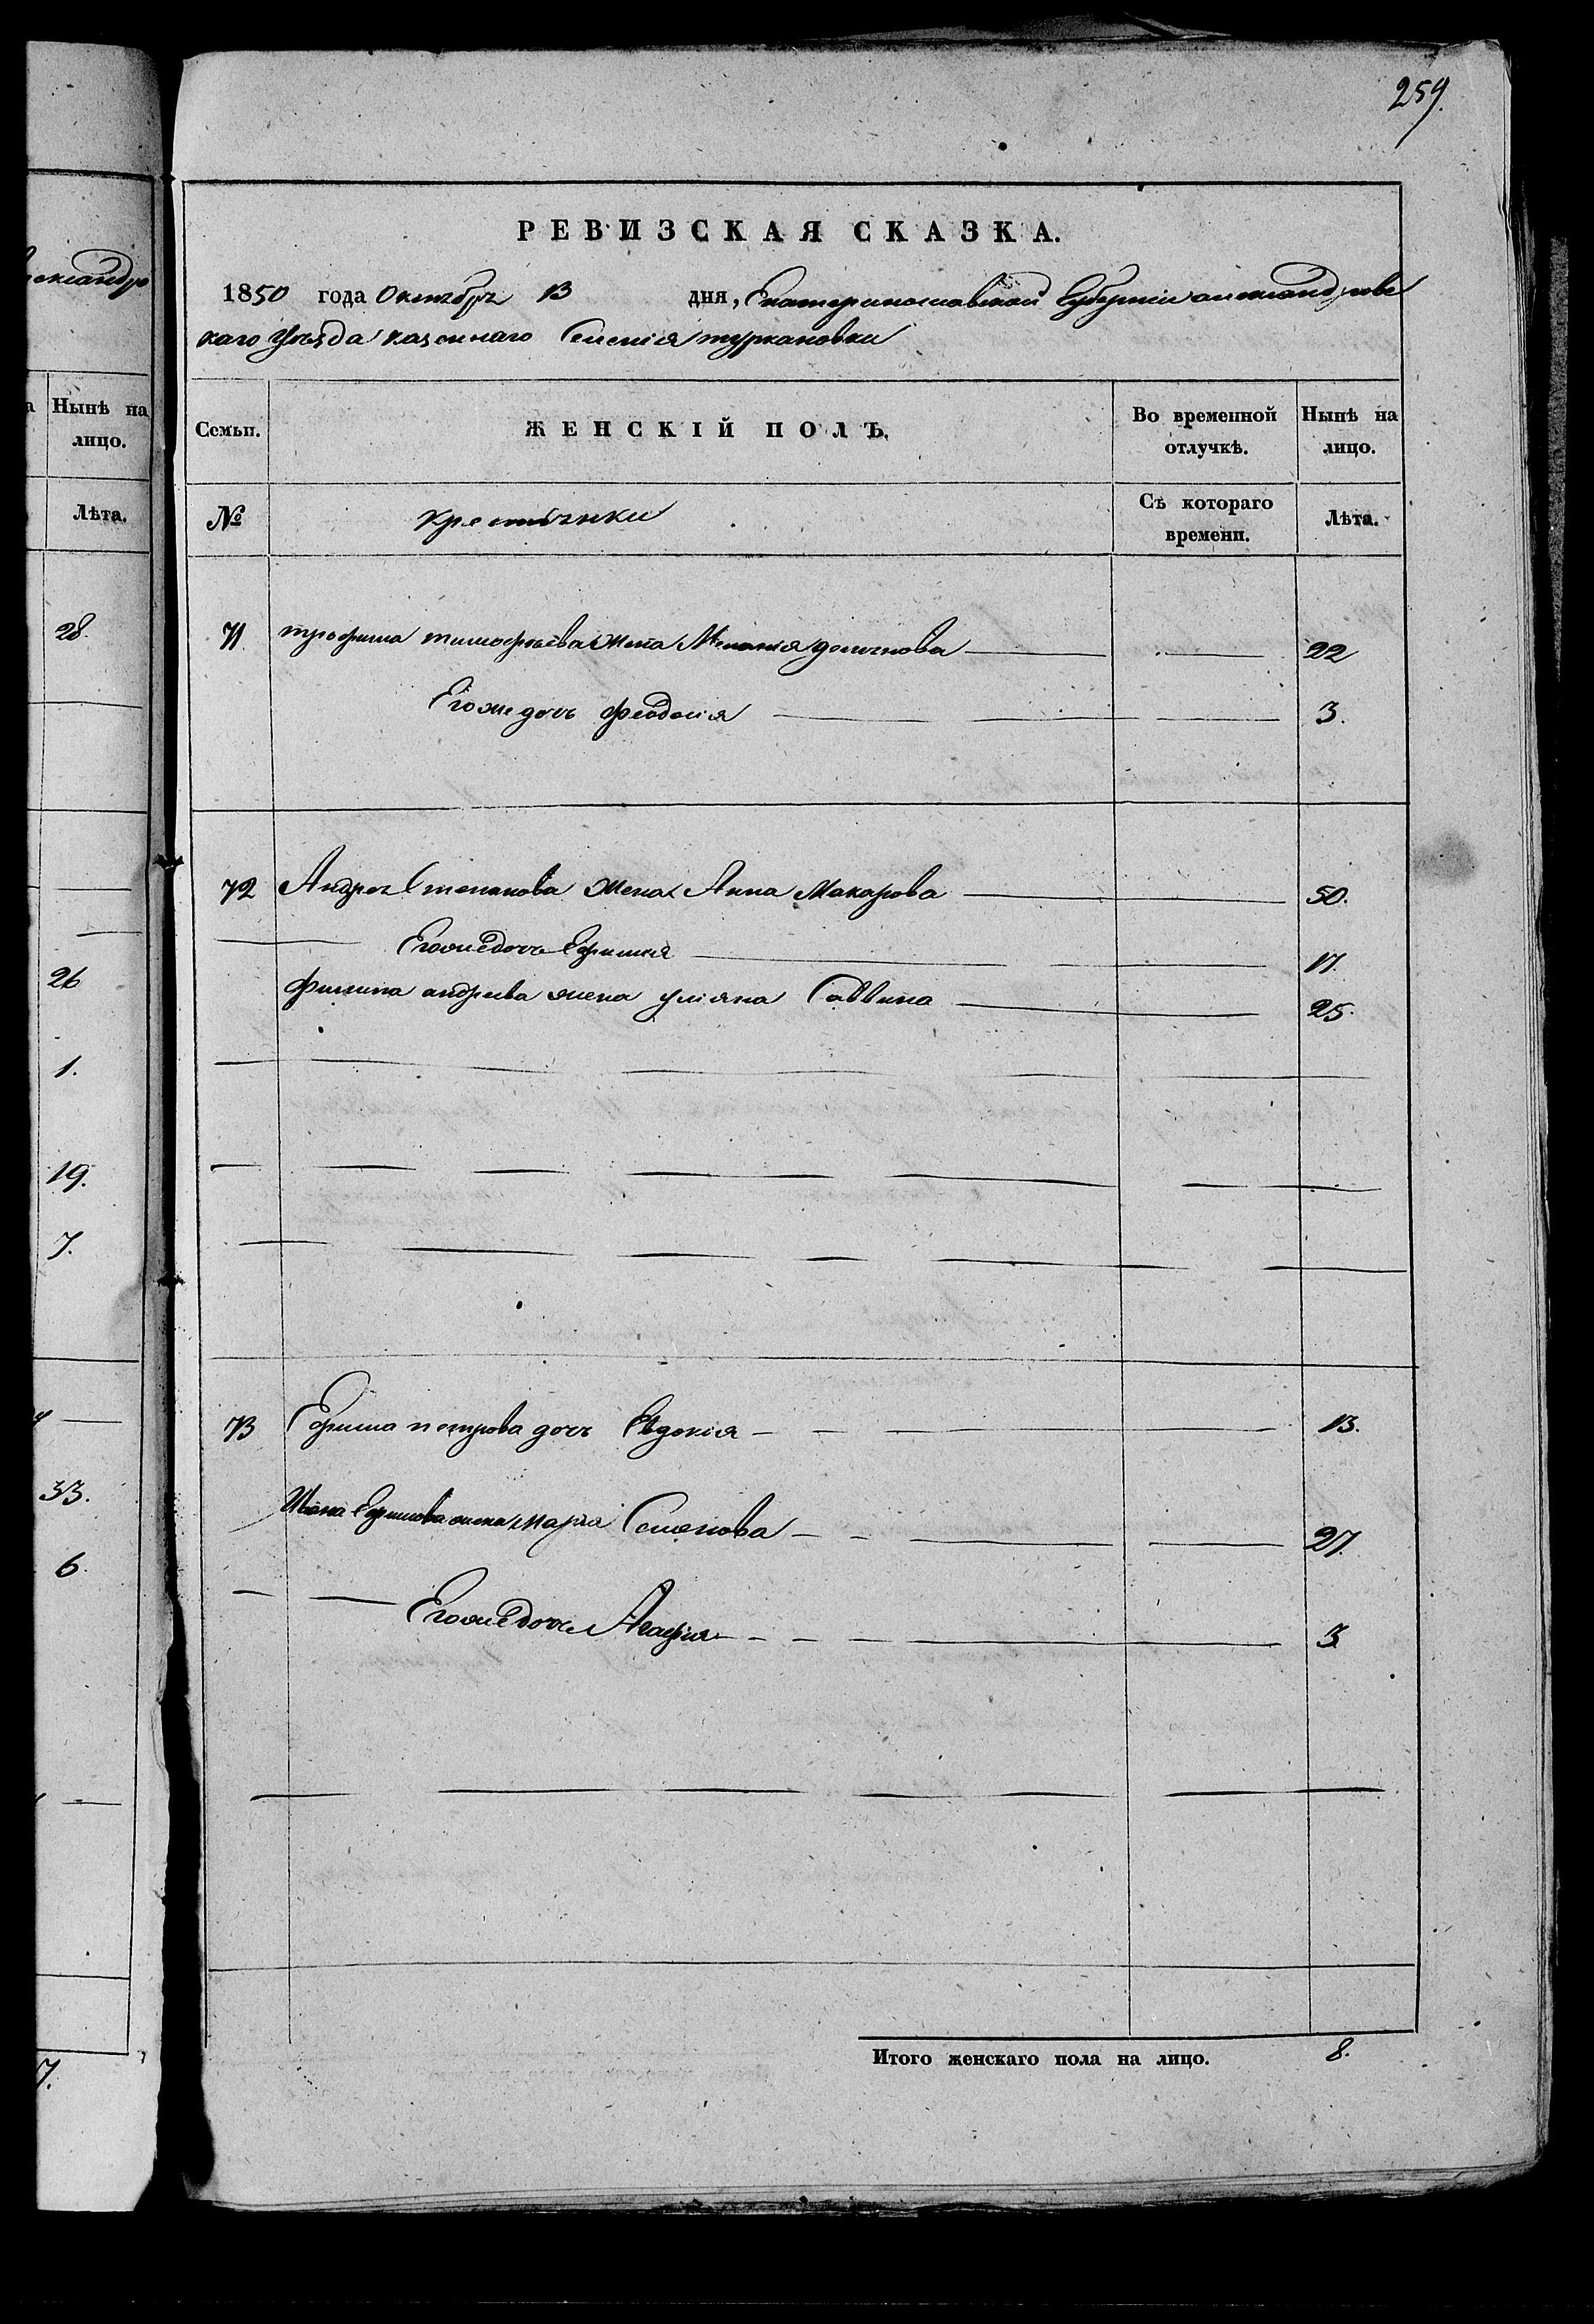 259.
РЕВИЗСКАЯ СКАЗКА.
1850 года Октября 13 дня, Екатеринославской Губерніи александровс
каго уѣзда казеннаго Селенія туркановки
Семьи.
ЖЕНСКІЙ ПОЛЪ.
Во временной отлучкѣ.
Нынѣ на лицо.
№
крестьянки
Съ котораго времени.
Лѣта.
71 трофима тимофѣева жена Меланія 22
Егоже дочь феодосія 3.
72 Андрея Степанова жена Анна Макарова 50.
Егоже дочь Ефимия 17.
филипа андреева жена уліяна Саввина 25.
73 Ефима петрова дочь Евдокія 13.
Ивана Ефимова жена марія Семенова 27.
Егоже дочь Агафія 3
Итого женскаго пола на лицо. 8.
лександро
Нынѣ на
лицо.
Лѣта.
28.
26
1.
19.
7.
33.
6.
7.